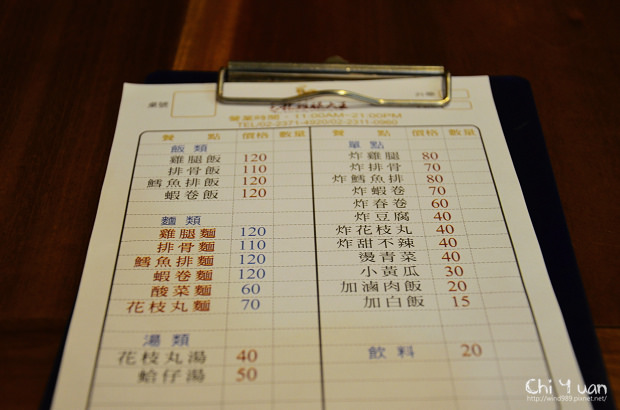 桌號
台單
營業時間：11:00AM~21:00PM
TEL/02-2371-4920/02-2311-0960
餐點 價格 數量 餐點 價格 數量
飯類
雞腿飯 120
排骨飯 110
鱈魚排飯 120
蝦卷飯 120
麵類
雞腿麵 120
排骨麵 110
鱈魚排麵 120
蝦卷麵 120
酸菜麵 60
花枝丸麵 70
湯類
花枝丸湯 40
蛤仔湯 50
單點
炸雞腿 80
炸排骨 70
炸鱈魚排 80
炸蝦卷 70
炸春卷 60
炸豆腐 40
炸花枝丸 40
炸甜不辣 40
燙青菜 40
小黃瓜 30
加滷肉飯 20
加白飯 15
飲料 20
Chi Yuan
http://wind989.pixnet.net/